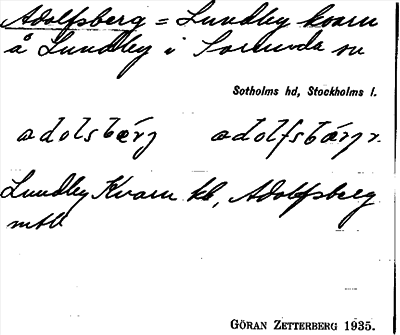 Adolfsberg = Lundby kvarn
å Lundby i Sorunda sn
Sotholms hd, Stockholms l.
adolsbärj adolfsbärj r.
Lundby Kvarn kb, Adolfsberg
mtb
GÖRAN ZETTERBERG 1935.